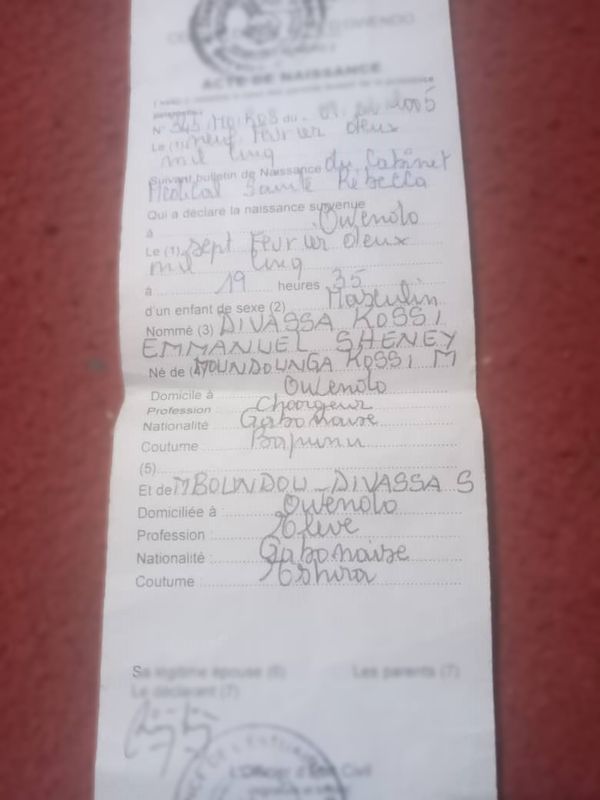 OWENDO
ACTE DE NAISSANCE
N° 545 du 09. 02 2005
Le (1) neuf Fevrier deux
mil Cinq
Suivant bulletin de Naissance du Cabinet
Medical Sainte Rebecca
Qui a déclaré la naissance survenue
à Owendo
Le (1) sept Fevrier deux
mil Cinq
à 19 heures 35
d'un enfant de sexe (2) Masculin
Nommé (3) DIVASSA KOSSI
EMMANUEL SHENEY
Né de (4) MOUNDOUNGA KOSSI M
Domicile à Owendo
Profession Chargeur
Nationalité Gabonaise
Coutume Bapunu
(5)
Et de MBOUNDOU - DIVASSA S
Domiciliée à : Owendo
Profession : Elève
Nationalité : Gabonaise
Coutume Eshira
Sa légitime épouse (6) Les parents (7)
Le déclarant (7)
L'Officier d'Etat Civil